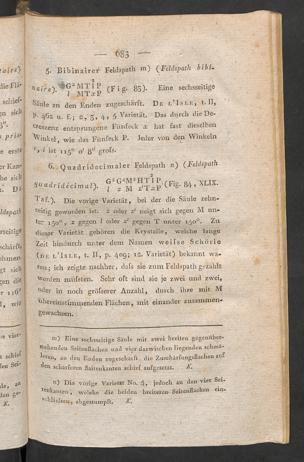 — 683 —
5. Bibinairer Feldspath m) (Feldspath bibi-
naire). G²MTIP (Fig. 85). Eine sechsseitige
l MTxP
Säule an den Enden zugeschärft. DE L'ISLE, t. II,
p. 462 u. f.; 2, 3, 4, 5 Varietät. Das durch die De-
crescenz entsprungene Fünfseck x hat fast dieselben
Winkel, wie das Fünfseck P. Jeder von den Winkeln
ist 115° 0' 8" gross.
6. Quadridecimaler Feldspath n) (Feldspath
quadridécimal). (Fig. 84, XLIX.
Taf.). Die vorige Varietät, bei der die Säule zehn-
seitig geworden ist. z oder z' neigt sich gegen M un-
ter 150°, z gegen l oder z' gegen T unter 150°. Zu
dieser Varietät gehören die Krystalle, welche lange
Zeit hindurch unter dem Namen weisse Schörle
(DE L'ISLE, t. II, p. 409; 12. Varietät) bekannt wa-
ren; ich zeigte nachher, dass sie zum Feldspath gezählt
werden müssten. Sehr oft sind sie je zwei und zwei,
oder in noch grösserer Anzahl, durch ihre mit M
übereinstimmenden Flächen, mit einander zusammen-
gewachsen.
m) Eine sechsseitige Säule mit zwei breiten gegenüber-
stehenden Seitenflächen und vier dazwischen liegenden schmä-
lern, an den Enden zugeschärft, die Zuschärfungsflächen auf
den schärferen Seitenkanten schief aufgesetzt. K.
n) Die vorige Varietät No. 5, jedoch an den vier Sei-
tenkanten, welche die beiden breiteren Seitenflächen ein-
schliessen, abgestumpft. K.